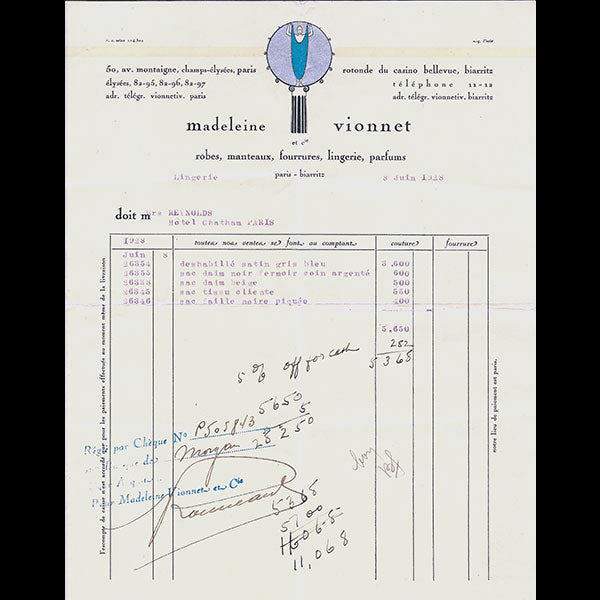 50, av. montaigne, champs-élysées, paris
élysées, 82-95, 82-96, 82-97
adr. télégr. vionnetiv. paris
rotonde du casino bellevue, biarritz
téléphone 11-12
adr. télégr. vionnetiv. biarritz
madeleine vionnet
et cie
robes, manteaux, fourrures, lingerie, parfums
paris - biarritz
Lingerie
8 Juin 1928
doit m Mrs REYNOLDS
Hotel Chatham PARIS
1928 toutes nos ventes se font au comptant couture fourrure
Juin 8
26354 deshabillé satin gris bleu 3.600
26355 sac daim noir fermoir coin argenté 600
26333 sac daim beige 500
26345 sac tissu cliente 550
26346 sac faille noire piquée 400
5.650
282
5 365
5 % off for cash
5650
5
28250
Réglé par Chèque No P505843
Banque de Morgan
Pour Madeleine Vionnet et Cie
5365
5700
11,068
l'escompte de caisse n'est accordé que pour les paiements effectués au moment même de la livraison
notre lieu de paiement est paris.